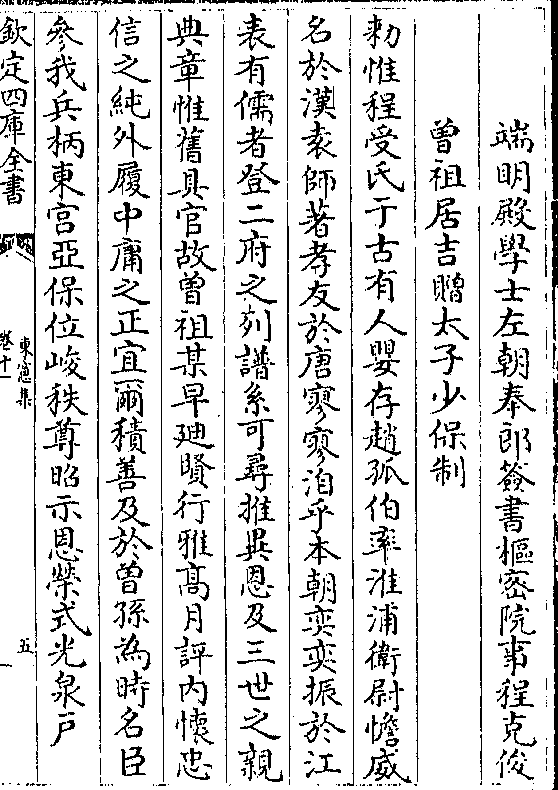 端明殿學士左朝奉郎簽書樞密院事程克俊
曾祖居吉贈太子少保制
勑惟程受氏于古有人嬰存趙孤伯率淮浦衛尉憺威
名於漢表師著孝友於唐寥寥洎乎本朝奕奕振於江
表有儒者登二府之列譜系可尋推異恩及三世之親
典章惟舊具官故曾祖某早廸賢行雅髙月評内懷忠
信之純外履中庸之正宜爾積善及於曾孫為時名臣
參我兵柄東宫亞保位峻秩尊昭示恩榮式光泉戸
欽定四庫全書
東窻集
卷十一
五